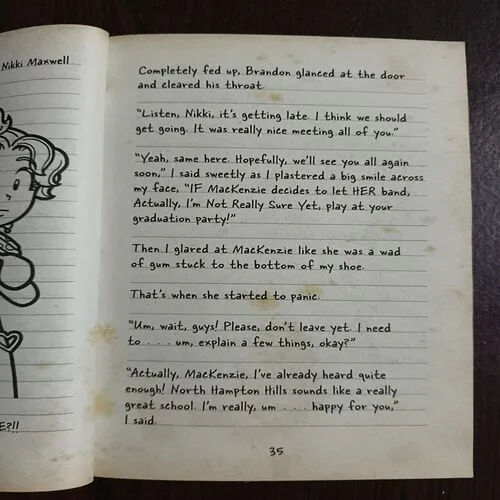 Nikki Maxwell
Completely fed up, Brandon glanced at the door
and cleared his throat.
"Listen, Nikki, it's getting late. I think we should
get going. It was really nice meeting all of you."
"Yeah, same here. Hopefully, we'll see you all again
soon," I said sweetly as I plastered a big smile across
my face, "IF MacKenzie decides to let HER band,
Actually, I'm Not Really Sure Yet, play at your
graduation party!"
Then I glared at MacKenzie like she was a wad
of gum stuck to the bottom of my shoe.
That's when she started to panic.
"Um, wait, guys! Please, don't leave yet. I need
to . . . um, explain a few things, okay?"
"Actually, MacKenzie, I've already heard quite
enough! North Hampton Hills sounds like a really
great school. I'm really, um . . . happy for you,"
I said.
E?!!
35